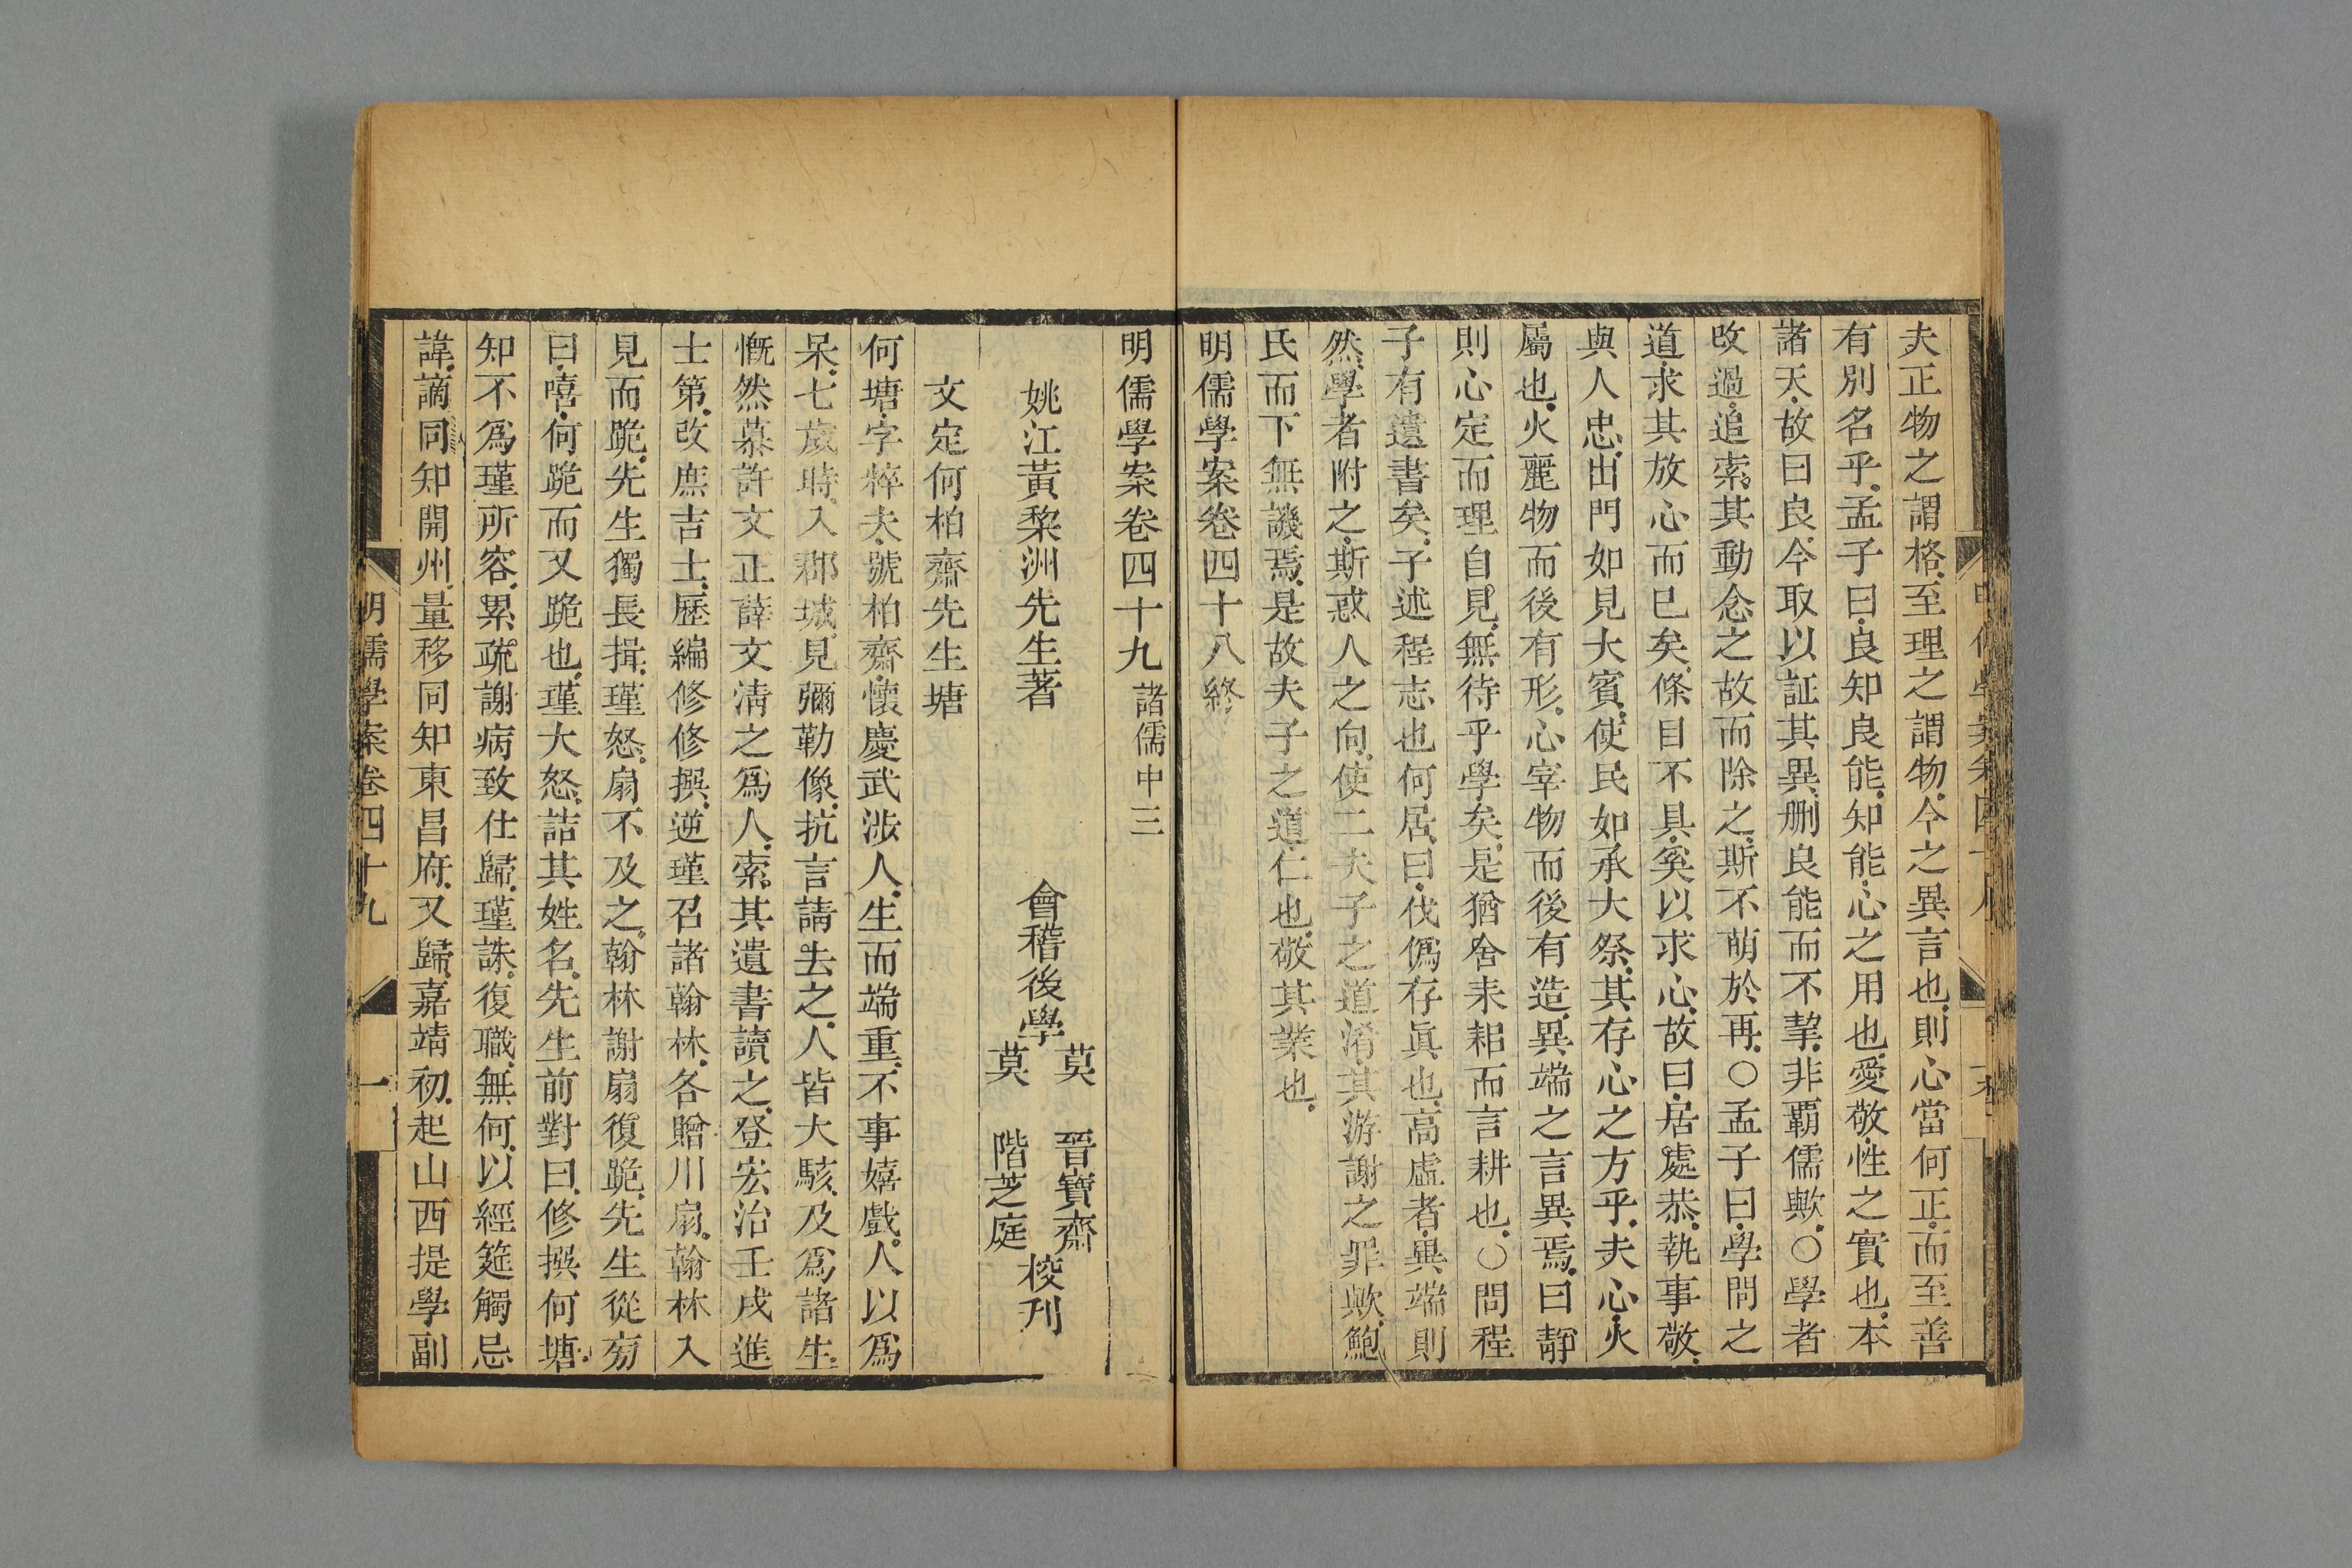 夫正物之謂格至理之謂物今之異言也則心當何正而至善
有別名乎孟子曰良知良能知能心之用也愛敬性之實也本
諸天故曰良今取以証其異刪良能而不挈非霸儒歟○學者
改過追索其動念之故而除之斯不萌於再○孟子曰學問之
道求其放心而已矣條目不具奚以求心故曰居處恭執事敬
與人忠出門如見大賓使民如承大祭其存心之方乎夫心火
屬也火麗物而後有形心宰物而後有造異端之言異焉曰靜
則心定而理自見無待乎學矣是猶舍耒耜而言耕也○問程
子有遺書矣子述程志也何居曰伐僞存眞也高虛者異端則
然學者附之斯惑人之向使二夫子之道淆其游謝之罪歟鮑
氏而下無譏焉是故夫子之道仁也敬其業也
明儒學案卷四十八終
明儒學案卷四十九 諸儒中三
姚江黃棃洲先生著 會稽後學 莫 晉寶齋 莫 階芝庭 梭刊
文定何柏齋先生塘
何塘字粹夫號柏齋懷慶武涉人生而端重不事嬉戲人以爲
呆七歲時入郡城見彌勒像抗言請去之人皆大駭及爲諸生
慨然慕許文正薛文淸之爲人索其遺書讀之登宏治壬戌進
士第改庶吉士歷編修修撰逆瑾召諸翰林各贈川扇翰林入
見而跪先生獨長揖瑾怒扇不及之翰林謝扇復跪先生從旁
曰嘻何跪而又跪也瑾大怒詰其姓名先生前對曰修撰何塘
知不爲瑾所容累疏謝病致仕歸瑾誅復職無何以經筵觸忌
諱謫同知開州量移同知東昌府又歸嘉靖初起山西提學副
明儒學案卷四十九 一